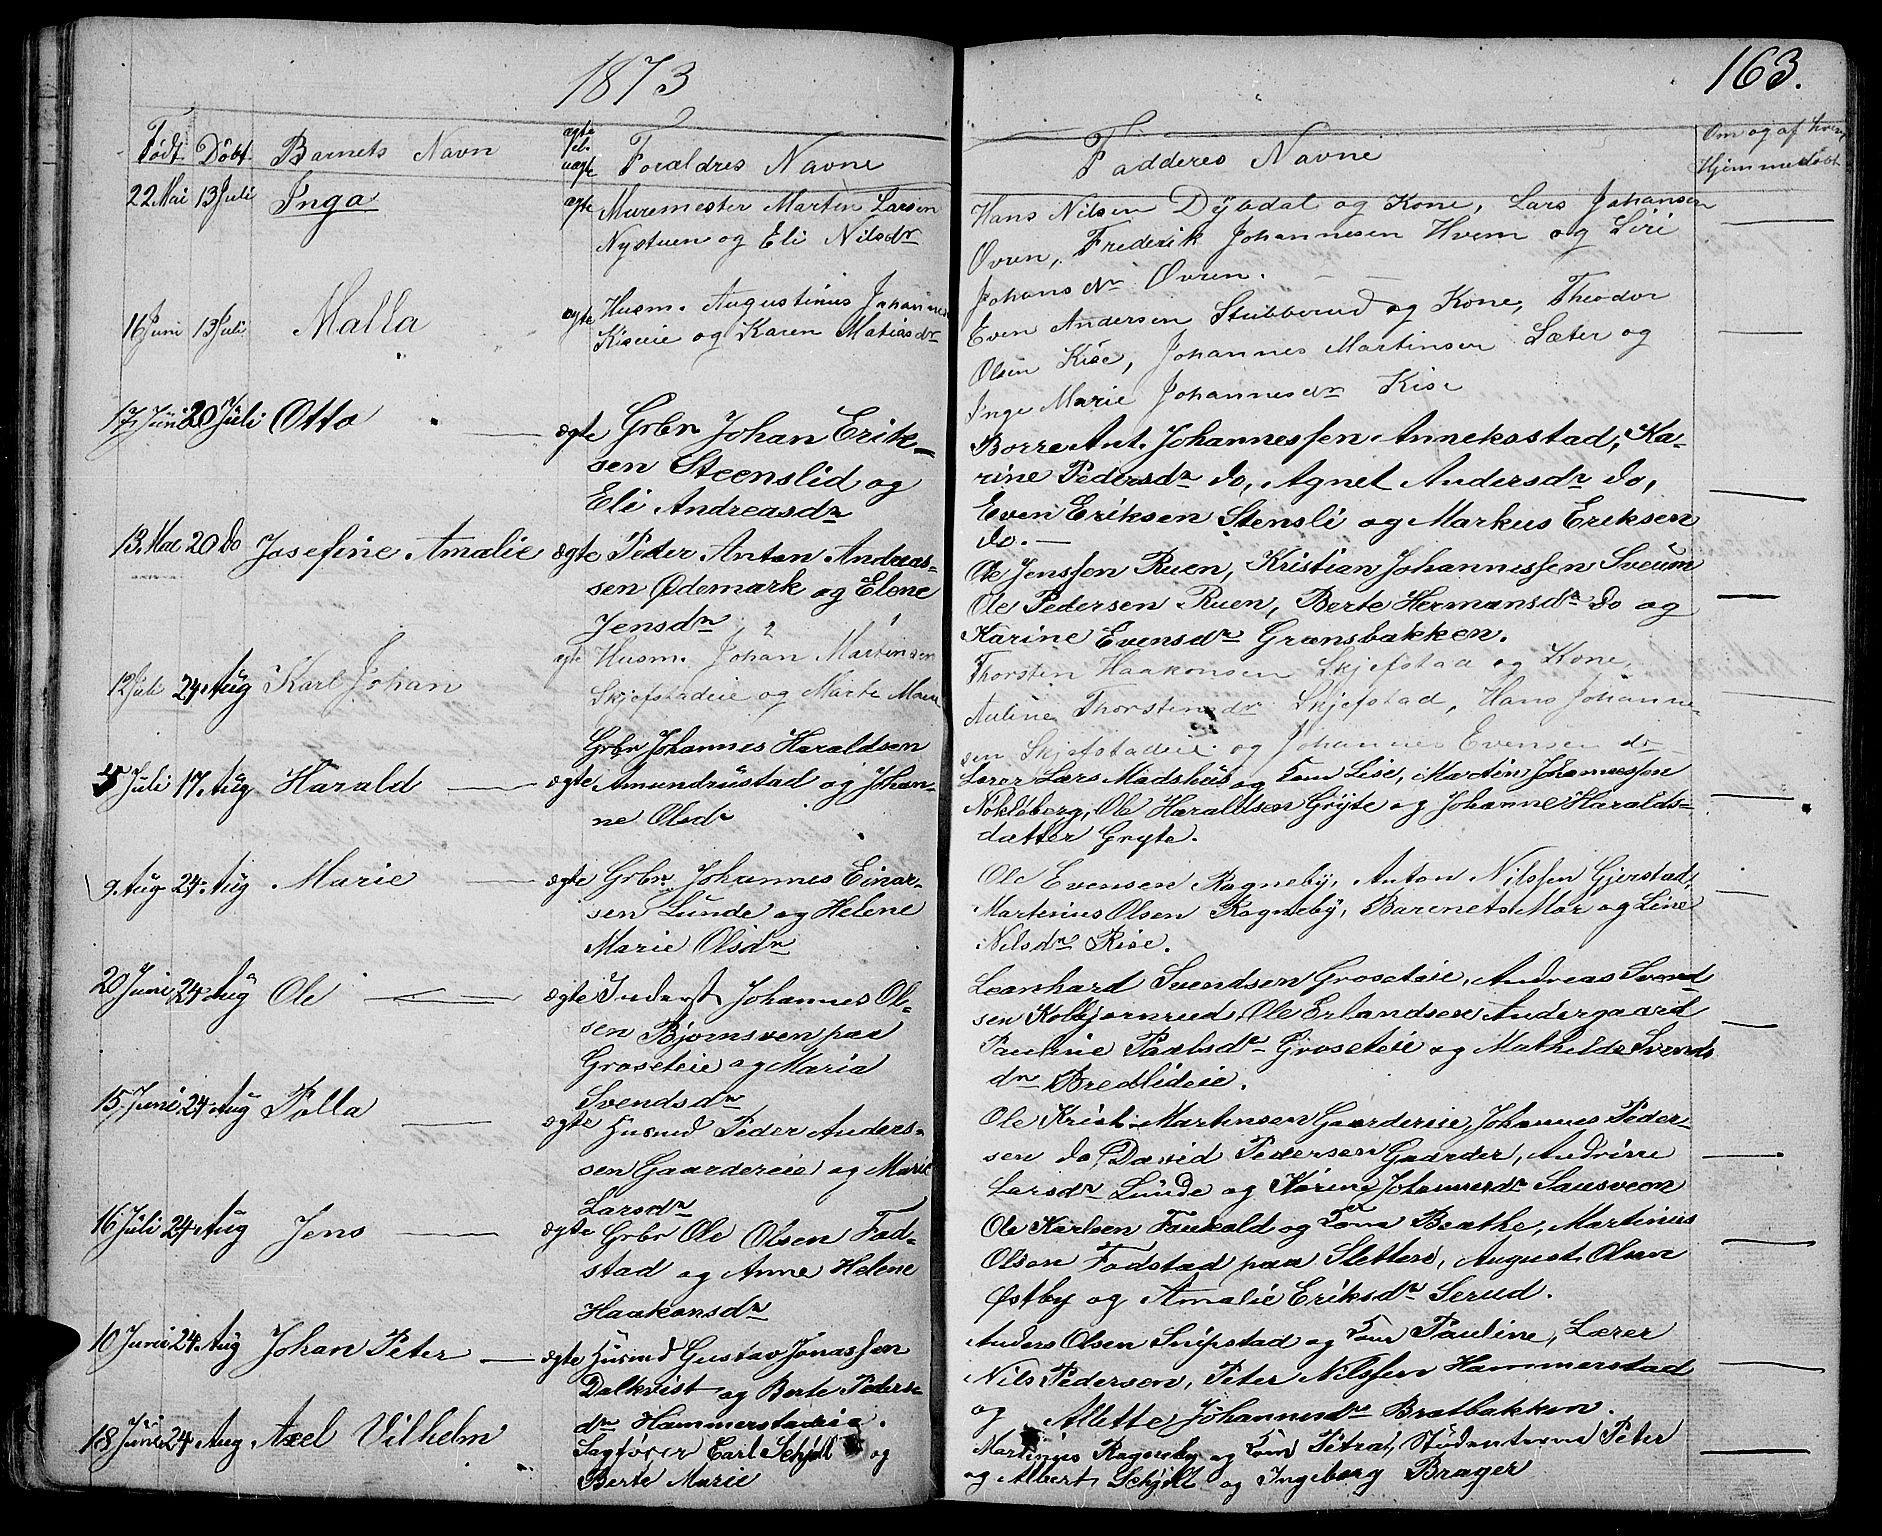 1873
163.
Født. Døbt. Barnets Navn ægte el. uægte Forældres Navne
Fadderes Navne Om og af hvem Hjemmedøbt
22 Mai 13 Juli Inga ægte Muremester Martin Larsen
Nystuen og Eli Nilsdr
Hans Nilsen Dybdal og Kone, Lars Johansen
Ovren, Frederik Johannesen Hvem og Siri
Johansdr Ovren.
16 Juni 13 Juli Malla ægte Husm. Augustinus Johannes
Kiseie og Karen Matiasdr
Even Andersen Stubberud og Kone, Theodor
Olsen Kise, Johannes Martinsen Sæter og
Inge Marie Johannesdr Kise
17 Juni 20 Juli Otto ægte Grbr Johan Erik-
sen Steenslid og
Eli Andreasdr
Borre Ant. Johannessen Anneksstad, Ka-
rine Pedersdr do, Agnet Andersdr do,
Even Eriksen Stensli og Markus Eriksen
do.
13. Mai 20 do Josefine Amalie ægte Peder Anton Andreas-
sen Ødemark og Elene
Jensdr
Ole Jenssen Ruen, Kristian Johannessen Sveum
Ole Pedersen Ruen, Berte Hermansdr do og
Karine Evensdr Gransbakken.
12 Juli 24. Aug Karl Johan ægte Husm. Johan Martinsen
Skjefstadeie og Marte Marie
Thorsten Haakonsen Skjefstad og Kone,
Auline Thorstensdr Skjefstad, Hans Johanne-
sen Skjefstadeie og Johannes Evensen do
5 Juli 17. Aug Harald ægte Grbr Johannes Haraldsen
Amundrustad og Johan-
ne Olsdr
Lærer Lars Madshus og Kone Lise, Martin Johannessen
Nokleberg, Ole Haraldsen Gryte og Johanne Haralds-
datter Gryte.
9. Aug 24. Aug Marie ægte Grbr Johannes Einar-
sen Lunde og Helene
Marie Olsdr
Ole Evensen Ragneby, Anton Nilssen Gjerstad,
Martinius Olsen Ragneby, Barnets Mor og Line
Nilsdr Rise.
20 Juni 24. Aug Ole ægte Inderst Johannes Ol-
sen Bjornsven paa
Groseteie og Maria
Svendsdr
Leonhard Svendsen Groseteie, Andreas Svend
sen Kolbjørnrud, Ole Erlandsen Andergaard
Pauline Paulsdr Groseteie og Mathilde Svends
dr Bredlideie.
15. Juni 24. Aug Palla ægte Husmd Peder Anders-
sen Gaardereie og Marie
Larsdr
Ole Krist. Martinsen Gaardereie, Johannes Peder-
sen do, David Pedersen Gaarder, Andrine
Larsdr Lunde og Karine Johannesdr Sausveen
16 Juli 24. Aug Jens ægte Grbr Ole Olsen Fod-
stad og Anne Helene
Haakonsdr
Ole Karlsen Faukald og Kone Beathe, Martinius
Olsen Fodstad paa Slettere, August Olsen
Østby og Amalie Eriksdr Serud.
10 Juni 24. Aug Johan Peter ægte Husmd Gustav Jonassen
Dalkvist og Berte Peders-
dr Hammerstadeie.
Anders Olsen Snipstad og Kone Pauline, Lærer
Nils Pedersen, Peter Nilssen Hammerstad
og Alette Johannesdr Bratbakken.
18 Juni 24. Aug. Axel Vilhelm Sagfører Carl Schjøll og
Berte Marie
Martinius Ragneby og Kone Petra, Studenterne Peter
og Albert Schjøll og Ingeborg Brager